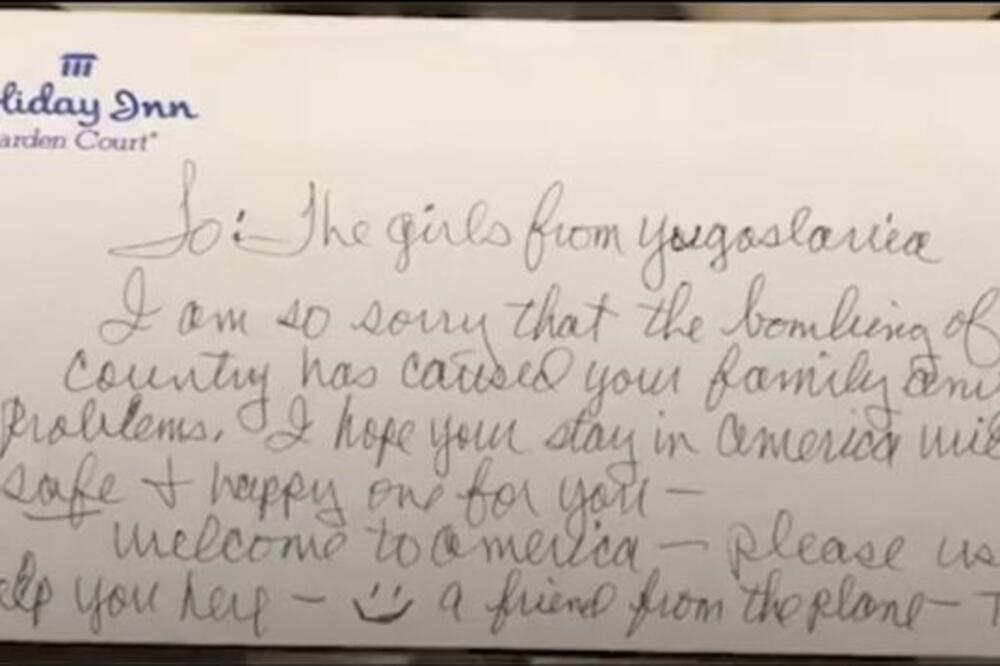 liday Inn
arden Court®
To: The girls from Yugoslavia
I am so sorry that the bombing of
country has caused your family any
problems. I hope your stay in America
safe + happy one for you —
Welcome to America — please us
elp you here — a friend from the plane — T